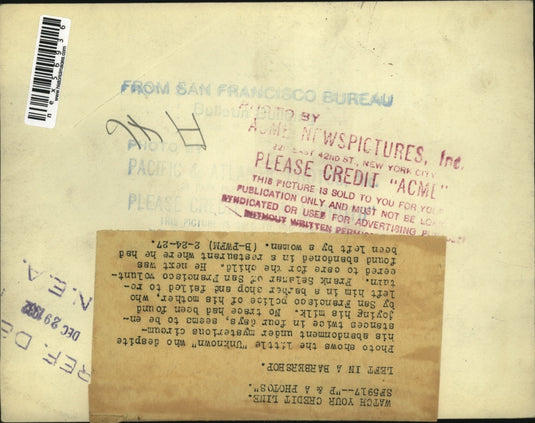 nex56936
FROM SAN FRANCISCO BUREAU
PHOTO BY
ACME NEWSPICTURES, Inc.
220 EAST 42ND ST., NEW YORK CITY
PLEASE CREDIT "ACME"
THIS PICTURE IS SOLD TO YOU FOR YOUR
PUBLICATION ONLY AND MUST NOT BE
SYNDICATED OR USED FOR ADVERTISING
WITHOUT WRITTEN
PHOTO
PACIFIC & ATL
PLEASE
THIS PICTURE
REF. DE
DEC 29 1932
N.E.A.
WATCH YOUR CREDIT LINE.
SF5917--"P & A PHOTOS".
LEFT IN A BARBERSHOP.
Photo shows the little "Unknown" who despite
his abandonment under mysterious circum-
stances twice in four days, seems to be en-
joying his milk. No trace had been found
by San Francisco police of his mother, who
left him in a barber shop and failed to re-
turn. Frank Salazar of San Francisco volunt-
eered to care for the child. He next was
found abandoned in a restaurant where he had
been left by a woman. (B-PWM) 2-24-27.